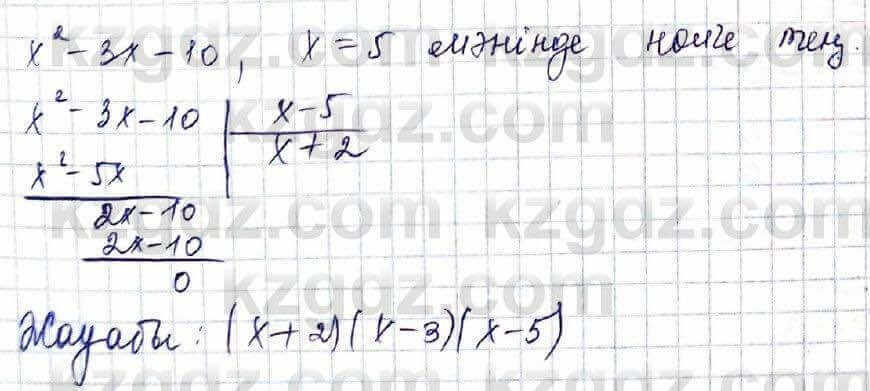 x² - 3x - 10, x = 5 мәнінде нөлге тең.
x² - 3x - 10 | x - 5
x² - 5x | x + 2
2x - 10
2x - 10
0
Жауабы: (x + 2)(x - 3)(x - 5)
kzgdz.com kzgdz.com
kzgdz.com
kzgdz.com kzgdz.com
kzgdz.com
kzgdz.com kzgdz.com